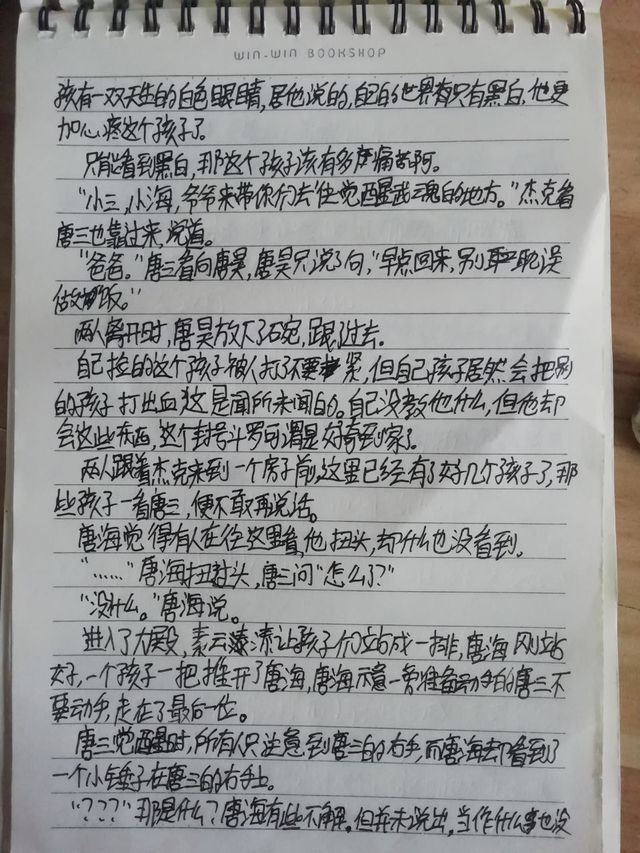 WIN-WIN BOOKSHOP
孩有一双天生的白色眼睛,居他说的,自己的世界都只有黑白.他更
加心疼这个孩子了。
只能看到黑白,那这个孩子该有多痛苦啊。
“小三,小海,爷爷来带你们去觉醒武魂的地方。”杰克看
唐三也靠过来,说道。
“爸爸。”唐三看向唐昊,唐昊只说了句,“早点回来,别耽误
做饭。”
两人离开时,唐昊放下了石碗,跟了过去。
自己捡的这个孩子被人打了不要紧,但自己孩子居然会把别
的孩子打出血,这是闻所未闻的。自己没教他什么,但他却
会这些东西,这个封号斗罗可谓是好奇到家了。
两人跟着杰克来到一个房子前,这里已经有了好几个孩子了,那
些孩子一看唐三,便不敢再说话。
唐海觉得有人在往这里看,他扭头,却什么也没看到。
“……”唐海扭过头,唐三问“怎么了?”
“没什么。”唐海说。
进入了大殿,素云涛让孩子们站成一排,唐海刚站
好,一个孩子一把推开了唐海,唐海示意一旁准备动手的唐三不
要动手,走在了最后一位。
唐三觉醒时,所有人只注意到唐三的右手,而唐海却看到了
一个小锤子在唐三的右手上。
“???”那是什么?唐海有些不解,但并未说出,当作什么事也没